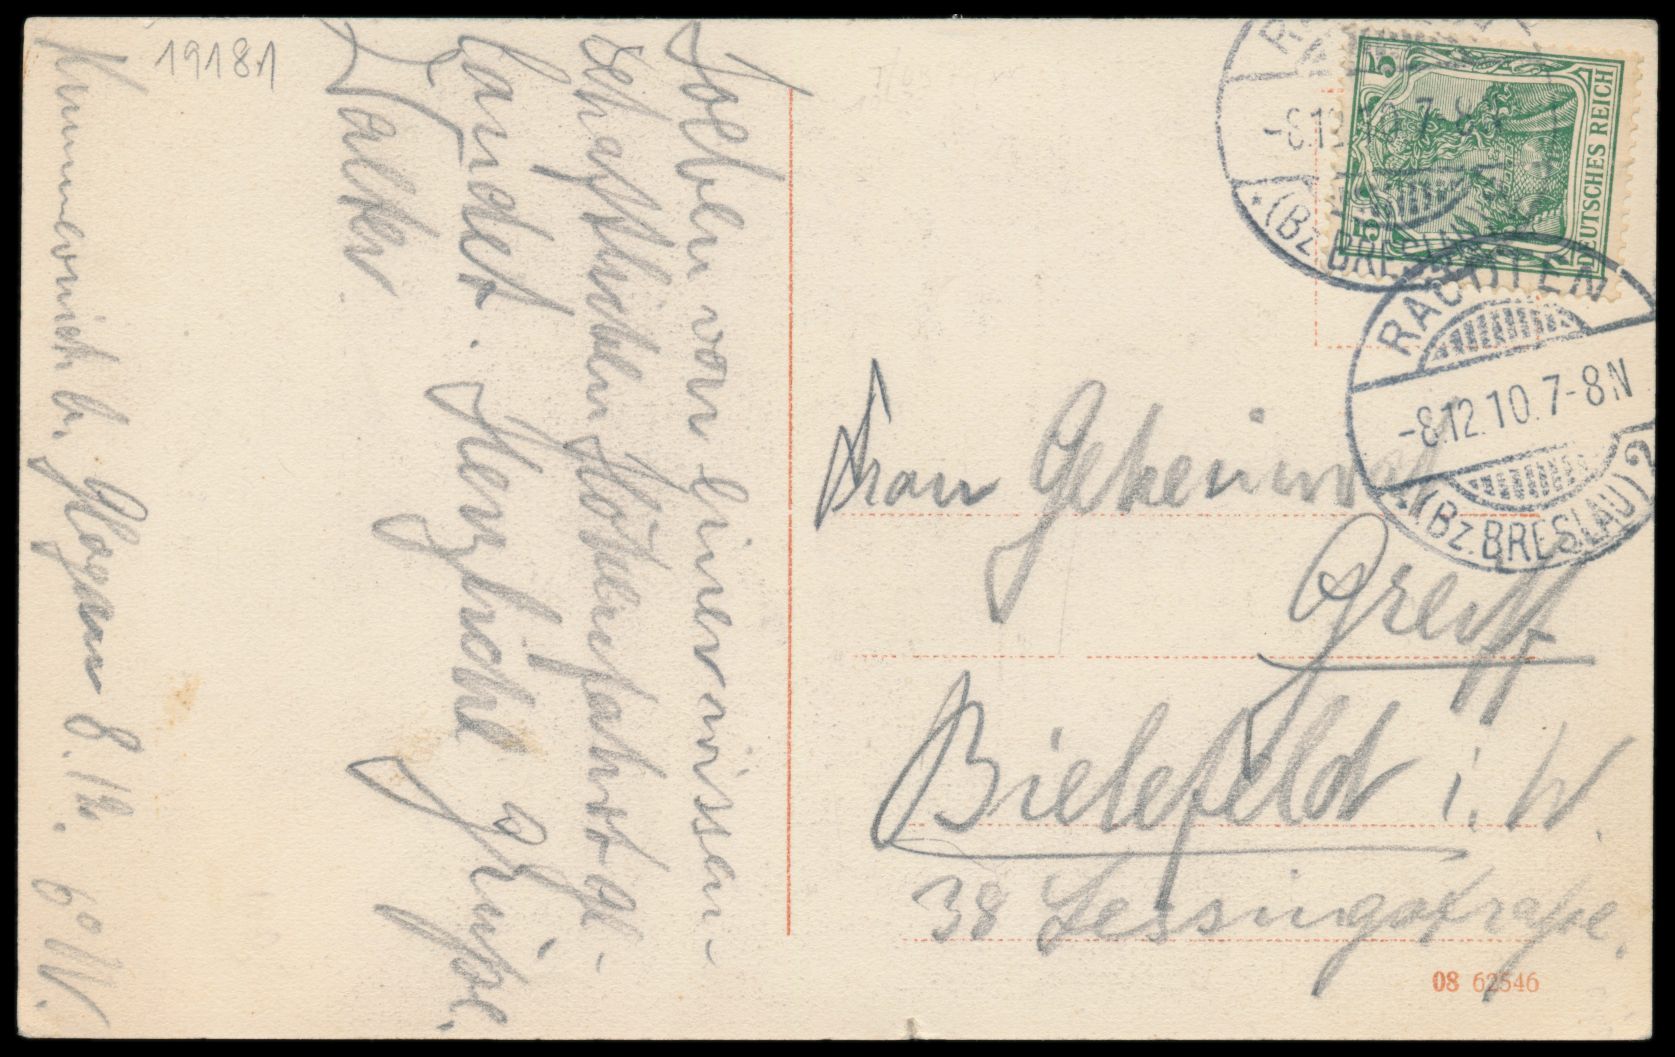 19181
Kummernick b. Glogau 8.12. 6° N.
Soeben von einer wissen-
schaftlichen Höhenfahrt ge-
landet. Herzliche Grüße,
Walter
Frau Geheimrat
Greiff
Bielefeld i. W.
38 Lessingstraße.
08 62546
5 5
DEUTSCHES REICH
-8.12.10.7-8N
(BZ. BRESLAU)
RAUDTEN
-8.12.10.7-8N
(BZ. BRESLAU) 2